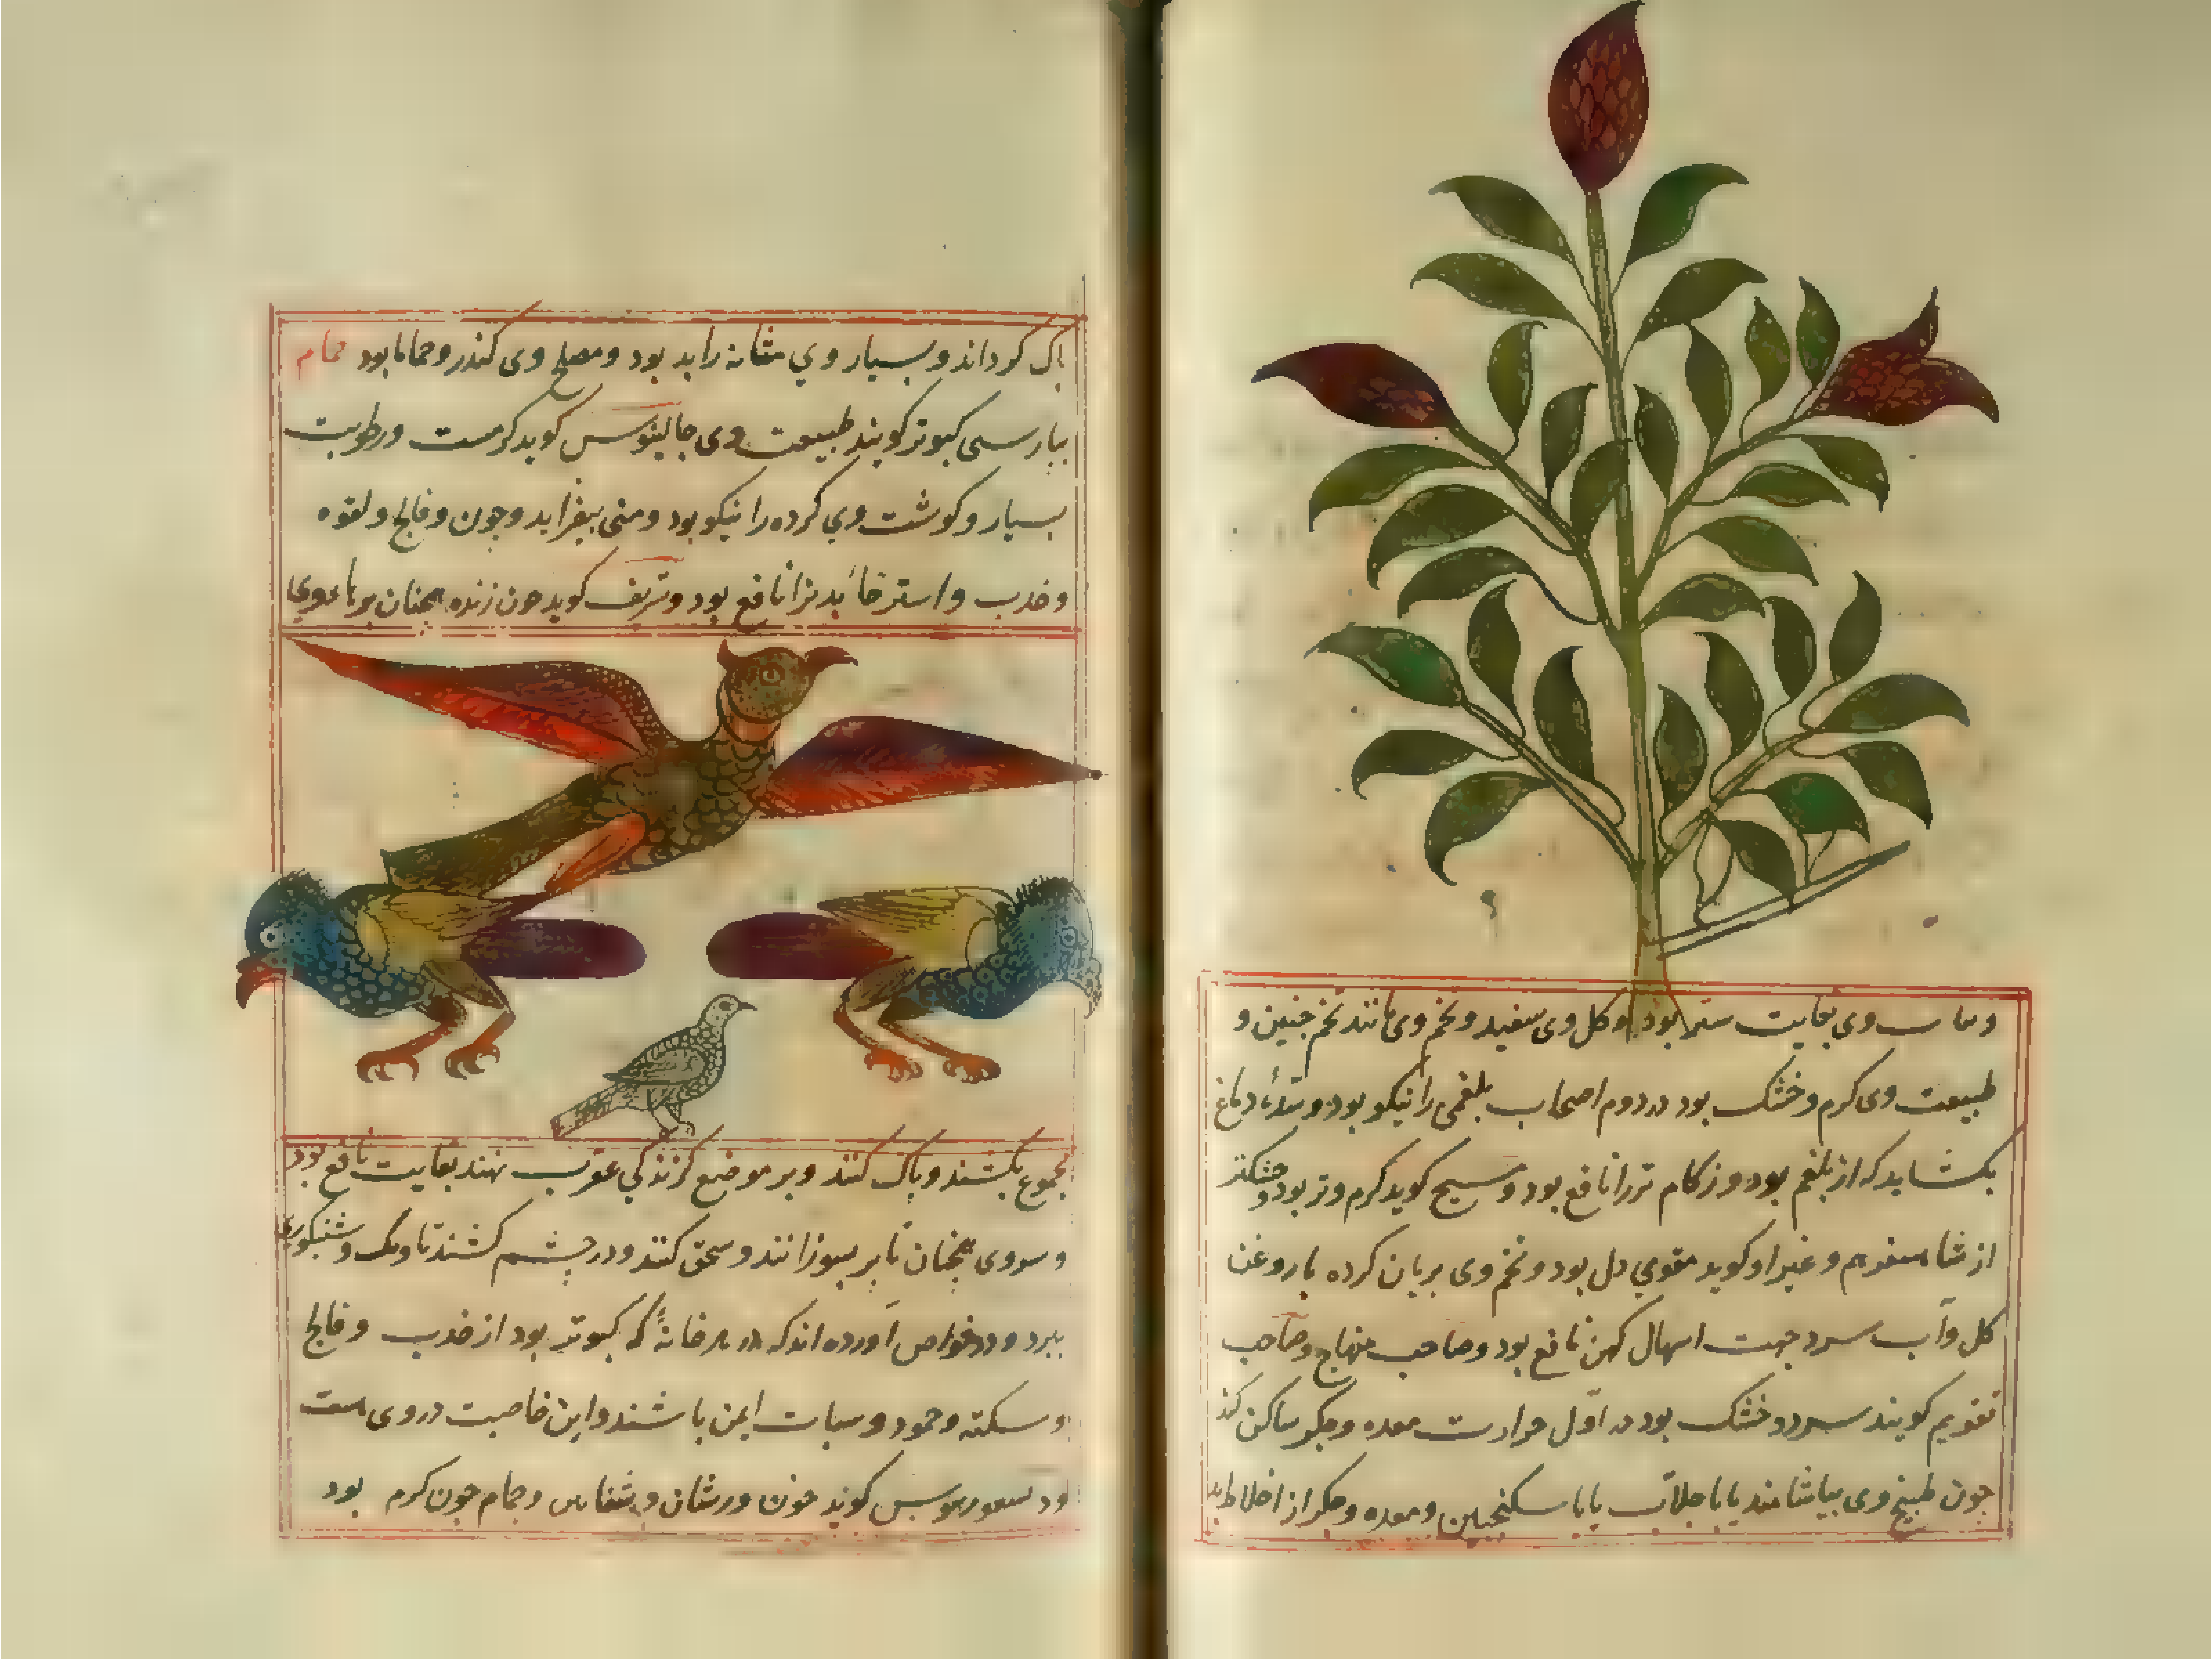 وی بغایت سبز بود و کل وی سفید و تخم وی مانند تخم و
طبیعت وی کرم و خشک بود در دوم اصحاب بلغمی را نیکو بود و سدّهٔ دماغ
بکشاید که از بلغم بود و زکام تر را نافع بود و مسیح کوید کرم و تر بود و خشکتر
از شاهسفرم و غیر او کوید مقوی دل بود و تخم وی بریان کرده با روغن
کل و آب سرد جهت اسهال کهن نافع بود و صاحب منهاج و صاحب
تقویم کویند سرد و خشک بود در اوّل حرارت معده و جکر ساکن کند
چون طبیخ وی بیاشامند یا با جلاّب یا با سکنجبین و معده و جکر از اخلاط بد
پاک کرداند و بسیار وی مثانه را بد بود و مصلح وی کندر و حماما بود حمام
بپارسی کبوتر کویند طبیعت وی جالینوس کوید کرمست و رطوبت
بسیار و کوشت وی کرده را نیکو بود و منی بیفزاید و خون و فالج و لقوه
و خدب و استرخا بدنرا نافع بود و شریف کوید چون زنده همچنان بربا موی
مجموع بکشند و پاک کنند و بر موضع کزندکی عقرب نهند بغایت نافع بود
و موی همچنان تا پر بسوزانند و سحق کنند و در چشم کشند و شبکوری
ببرد و در خواص آورده اند که در هر خانهٔ که کبوتر بود از خدب و فالج
و سکته و جمود و سبات ایمن باشند و این خاصیت در وی هست
کوید خون ورشان و و حمام چون کرم بود